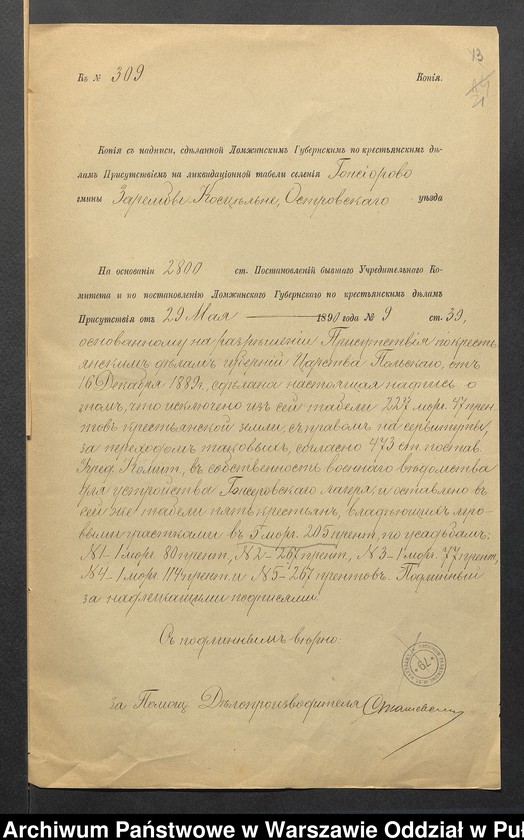 13
Къ № 309
Копія.
21
Копія съ надписи, сдѣланной Ломжинскимъ Губернскимъ по крестьянскимъ дѣ-
ламъ Присутствіемъ на ликвидаціонной табели селенія Гонсіорово
гмины Зарембы Косцѣльне, Островскаго уѣзда
На основаніи 2800 ст. Постановленій бывшаго Учредительнаго Ко-
митета и по постановленію Ломжинскаго Губернскаго по крестьянскимъ дѣламъ
Присутствія отъ 29 Мая 1890 года № 9 ст. 39,
основанному на разрѣшеніи Присутствія по кресть-
янскимъ дѣламъ губерній Царства Польскаго, отъ
16 Декабря 1889 г., сдѣлана настоящая надпись о
томъ, что исключено изъ сей табели 227 морг. 47 прен-
товъ крестьянской земли, съ правомъ на сервитуты,
за переходомъ таковыхъ, согласно 473 ст. постав.
Учред. Комит., въ собственность военнаго вѣдомства
для устройства Гонсіоровскаго лагеря, и оставлено въ
сей же табели пять крестьян, владѣющихъ
участками въ 5 морг. 205 прент, по усадьбамъ:
№1 - 1 морг. 80 прент, №2 - 267 прент, №3 - 1 морг. 77 прент,
№4 - 1 морг. 114 прент и №5 - 267 прентовъ. Подлинный
за надлежащими подписями.
Съ подлиннымъ вѣрно:
79
за Помощ. Дѣлопроизводителя
Archiwum Państwowe w Warszawie Oddział w Puł